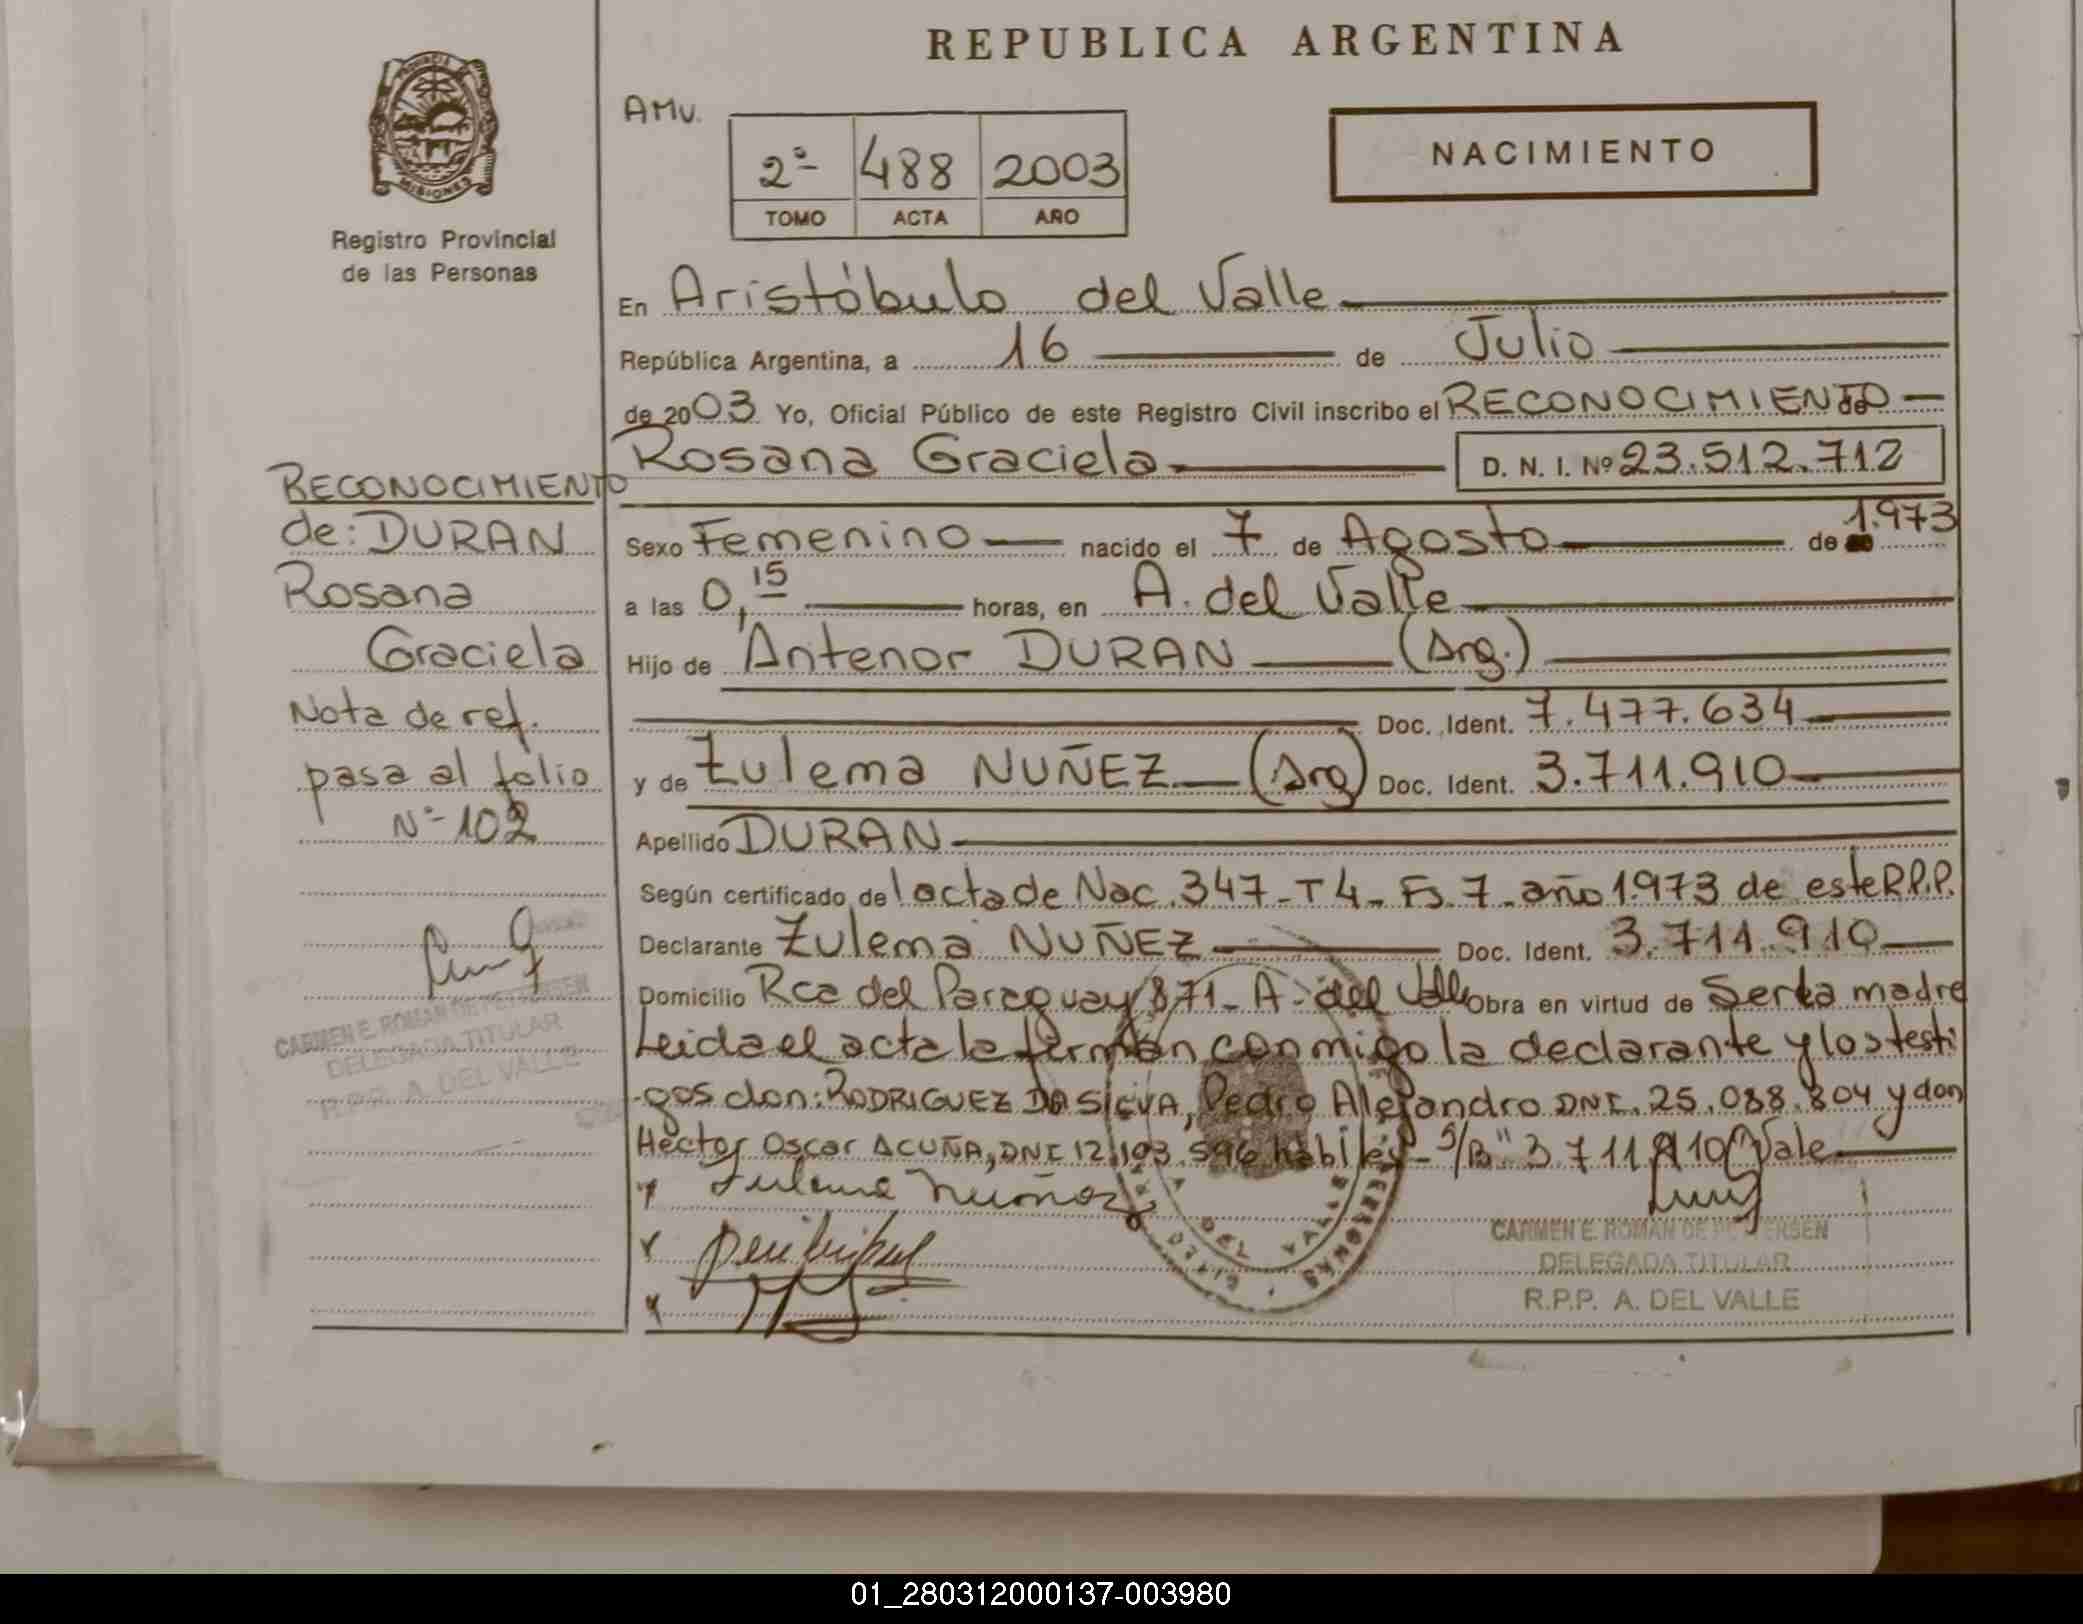 REPUBLICA ARGENTINA
PROVINCIA DE
MISIONES
Registro Provincial
de las Personas
AMV.
2º 488 2003
TOMO ACTA AÑO
NACIMIENTO
En Aristóbulo del Valle
República Argentina, a 16 de Julio
de 2003 Yo, Oficial Público de este Registro Civil inscribo el RECONOCIMIENTO de
Rosana Graciela D. N. I. Nº 23.512.712
Sexo Femenino nacido el 7 de Agosto de 1.973
a las 0,15 horas, en A. del Valle
Hijo de Antenor DURAN (Arg.)
Doc. Ident. 7.477.634
y de Zulema NUÑEZ (Arg) Doc. Ident. 3.711.910
Apellido DURAN
Según certificado de l acta de Nac. 347-T4-Fs.7-año 1.973 de este R.P.P.
Declarante Zulema NUÑEZ Doc. Ident. 3.711.910
Domicilio Rca del Paraguay 871- A. del Valle Obra en virtud de Ser la madre
Leida el acta la firman conmigo la declarante y los testi
gos don: RODRIGUEZ DA SILVA, Pedro Alejandro DNI. 25.088.804 y don
Hector Oscar ACUÑA, DNI 12.193.596 habiles- S/B" 3.711.910" Vale
Zulema Nuñez
CARMEN E. ROMAN DE PETTERSEN
DELEGADA TITULAR
R.P.P. A. DEL VALLE
RECONOCIMIENTO
de: DURAN
Rosana
Graciela
Nota de ref.
pasa al folio
Nº 102
CARMEN E. ROMAN DE PETTERSEN
DELEGADA TITULAR
R.P.P. A. DEL VALLE
01_280312000137-003980